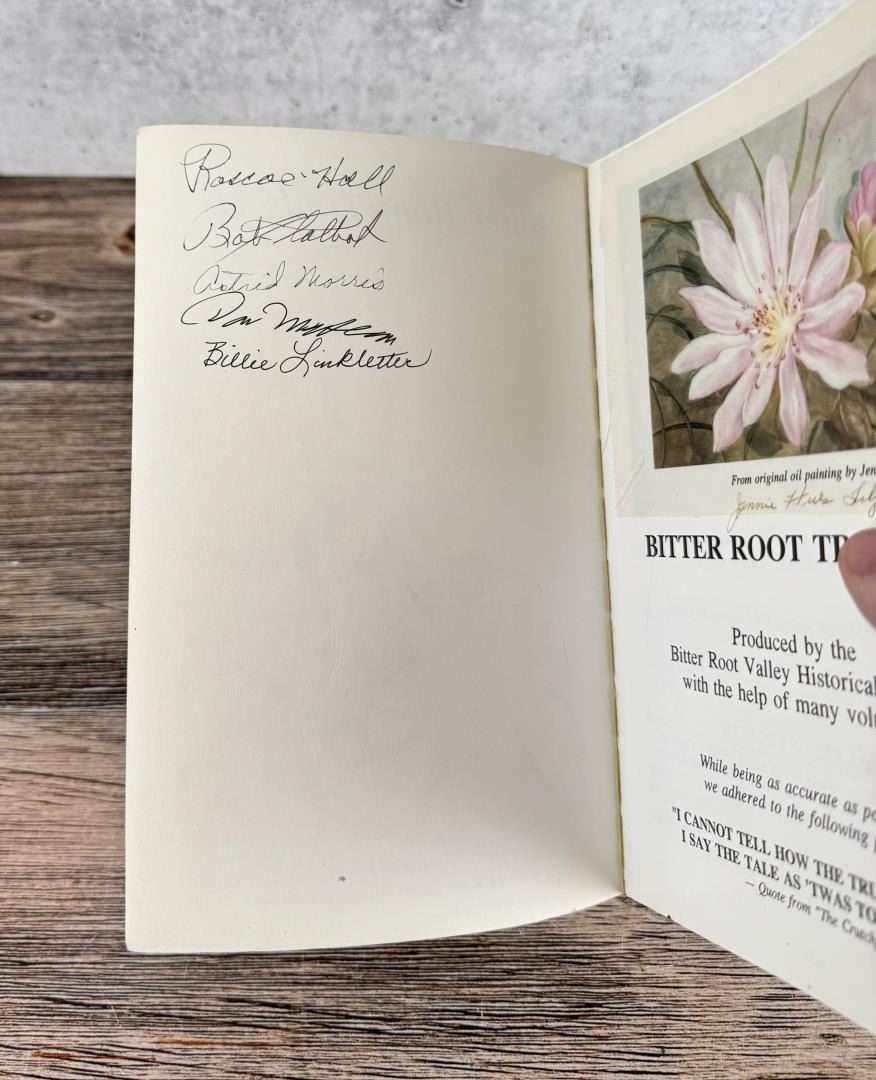 Roscoe Hall
Bob
Astrid Morris
Don
Billie Linkletter
From original oil painting by Jen
Jennie
BITTER ROOT TR
Produced by the
Bitter Root Valley Historical
with the help of many volu
While being as accurate as po
we adhered to the following p
"I CANNOT TELL HOW THE TRU
I SAY THE TALE AS 'TWAS TO
— Quote from "The Crutch